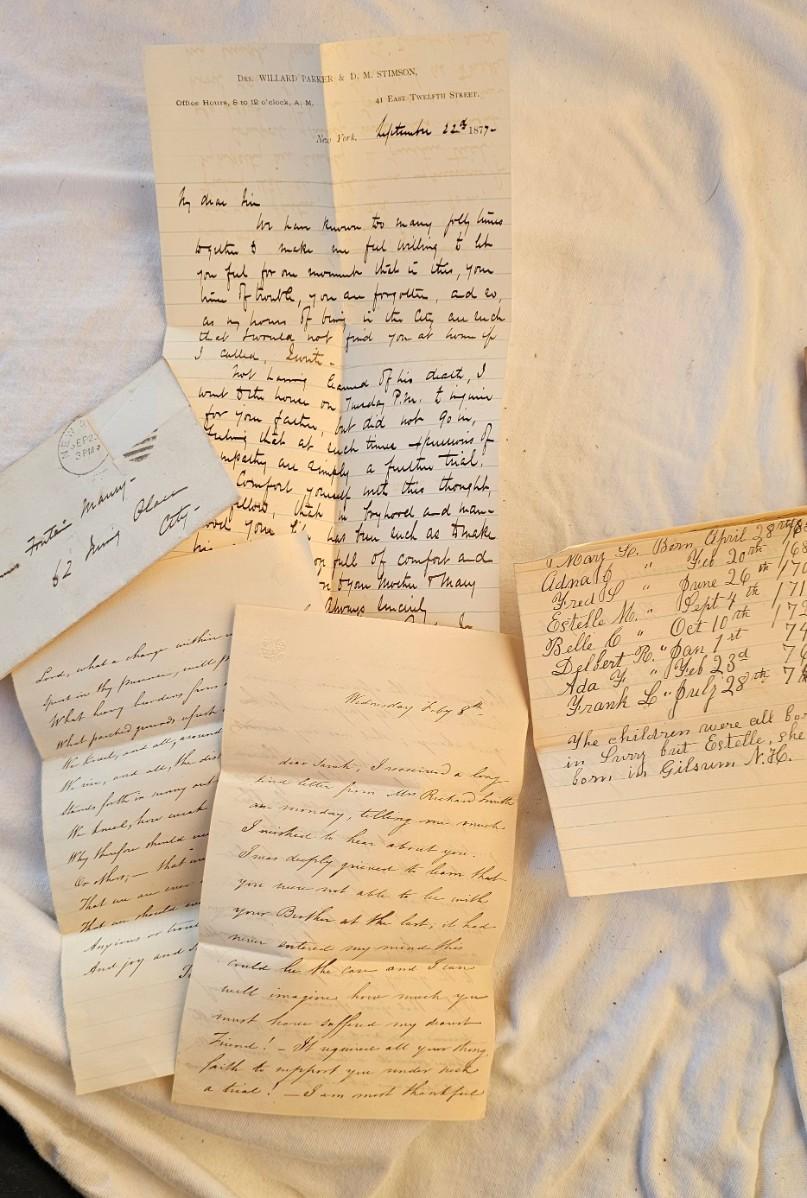 Drs. WILLARD PARKER & D. M. STIMSON,
Office Hours, 8 to 12 o'clock, A. M.
41 East Twelfth Street.
New York, September 22d 1877-
My dear Sir
We have known too many jolly times
together to make me feel willing to let
you feel for one moment that in this, your
time of trouble, you are forgotten, and so,
as my hours of being in the City are such
that I would not find you at home if
I called, I write -
Not having learned of his death, I
went to the house on Tuesday P.M. to inquire
for your father, but did not go in,
feeling that at such times expressions of
sympathy are simply a further trial.
Comfort yourself with this thought,
that in boyhood and man-
has been such as to make
full of comfort and
Mother & Mary
Always sincerely
NEW
SEP 23
3 PM
Maury-
62 Irving Place
City-
Lord, what a change within
What heavy burdens from
What parched grounds refresh
We kneel, and all, around
We rise, and all, the dis
Stands forth in sunny out
We kneel, how weak
Why therefore should we
Or others; - that
That we are ever
That we should ever
Anxious or troub
And joy and
Wednesday Feby 8th.
dear Sarah, I received a long
kind letter from Mrs Richard Smith
on monday, telling me much
I wished to hear about you.
I was deeply grieved to learn that
you were not able to be with
your Brother at the last, it had
never entered my mind this
could be the case and I can
well imagine how much you
must have suffered my dearest
Friend! - It required all your strong
faith to support you under such
a trial! - I am most thankful
Mary L. Born April 28
Adna C " Feb 20th '68
Fred L " June 26th
Estelle M. " Sept 4th '71
Belle C " Oct 10th '72
Delbert R. " Jan 1st 74
Ada F. " Feb 23d
Frank L " July 28th
The children were all bor
in Surry but Estelle, she
born in Gilsum N.H.